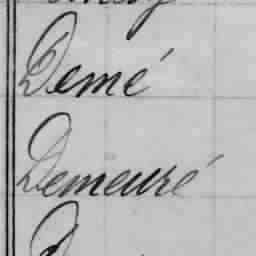 Demé
Demeuré